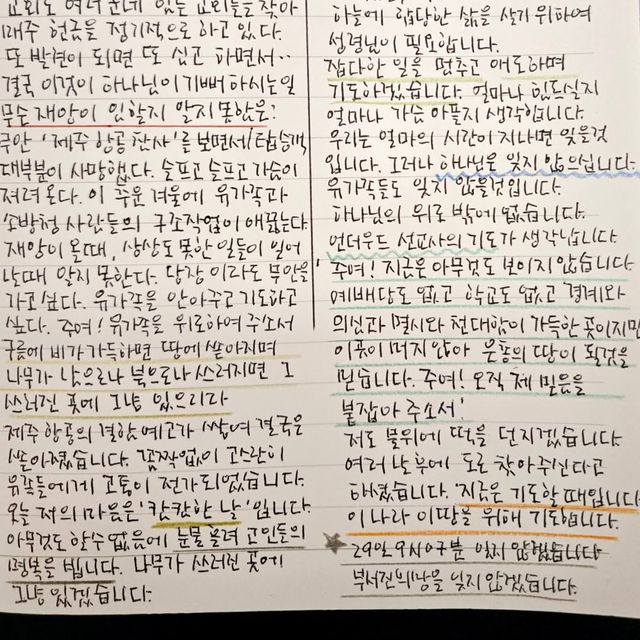 교회도 여러 군데 있는 교회들을 찾아
매주 헌금을 정기적으로 하고 있다.
또 발견이 되면 또 심고 하면서..
결국 이것이 하나님이 기뻐하시는 일
무슨 재앙이 임할지 알지 못함은:
'제주 항공 참사'를 보면서/탑승객
대부분이 사망했다. 슬프고 슬프고 가슴이
저려온다. 이 추운 겨울에 유가족과
소방청 사람들의 구조작업이 애끓는다.
재앙이 올때, 상상도 못한 일들이 일어
날때 알지 못한다. 당장이라도 무안을
가고 싶다. 유가족을 안아주고 기도하고
싶다. 주여! 유가족을 위로하여 주소서
구름에 비가 가득하면 땅에 쏟아지며
나무가 남으로나 북으로나 쓰러지면 그
쓰러진 곳에 그냥 있으리라
제주 항공의 결함 예고가 쌓여 결국은
쏟아졌습니다. 꼼짝없이 고스란히
유족들에게 고통이 전가되었습니다.
오늘 저의 마음은 '캄캄한 날'입니다.
아무것도 할수 없음에 눈물 흘려 고인들의
명복을 빕니다. 나무가 쓰러진 곳에
그냥 있겠습니다.
하늘에 합당한 삶을 살기 위하여
성령님이 필요합니다.
잡다한 일을 멈추고 애도하며
기도하겠습니다. 얼마나 힘드실지
얼마나 가슴 아플지 생각합니다.
우리는 얼마의 시간이 지나면 잊을것
입니다. 그러나 하나님은 잊지 않으십니다.
유가족들도 잊지 않을것입니다.
하나님의 위로 밖에 없습니다.
언더우드 선교사의 기도가 생각납니다.
'주여! 지금은 아무것도 보이지 않습니다.
예배당도 없고 학교도 없고 경계와
의심과 멸시와 천대함이 가득한 곳이지만
이곳이 머지않아 은총의 땅이 될것을
믿습니다. 주여! 오직 제 믿음을
붙잡아 주소서!
저도 물위에 떡을 던지겠습니다.
여러 날 후에 도로 찾아주신다고
하셨습니다. 지금은 기도할 때입니다
이 나라 이땅을 위해 기도합니다.
29일 9시 07분 잊지 않겠습니다
부서진 희망을 잊지 않겠습니다.